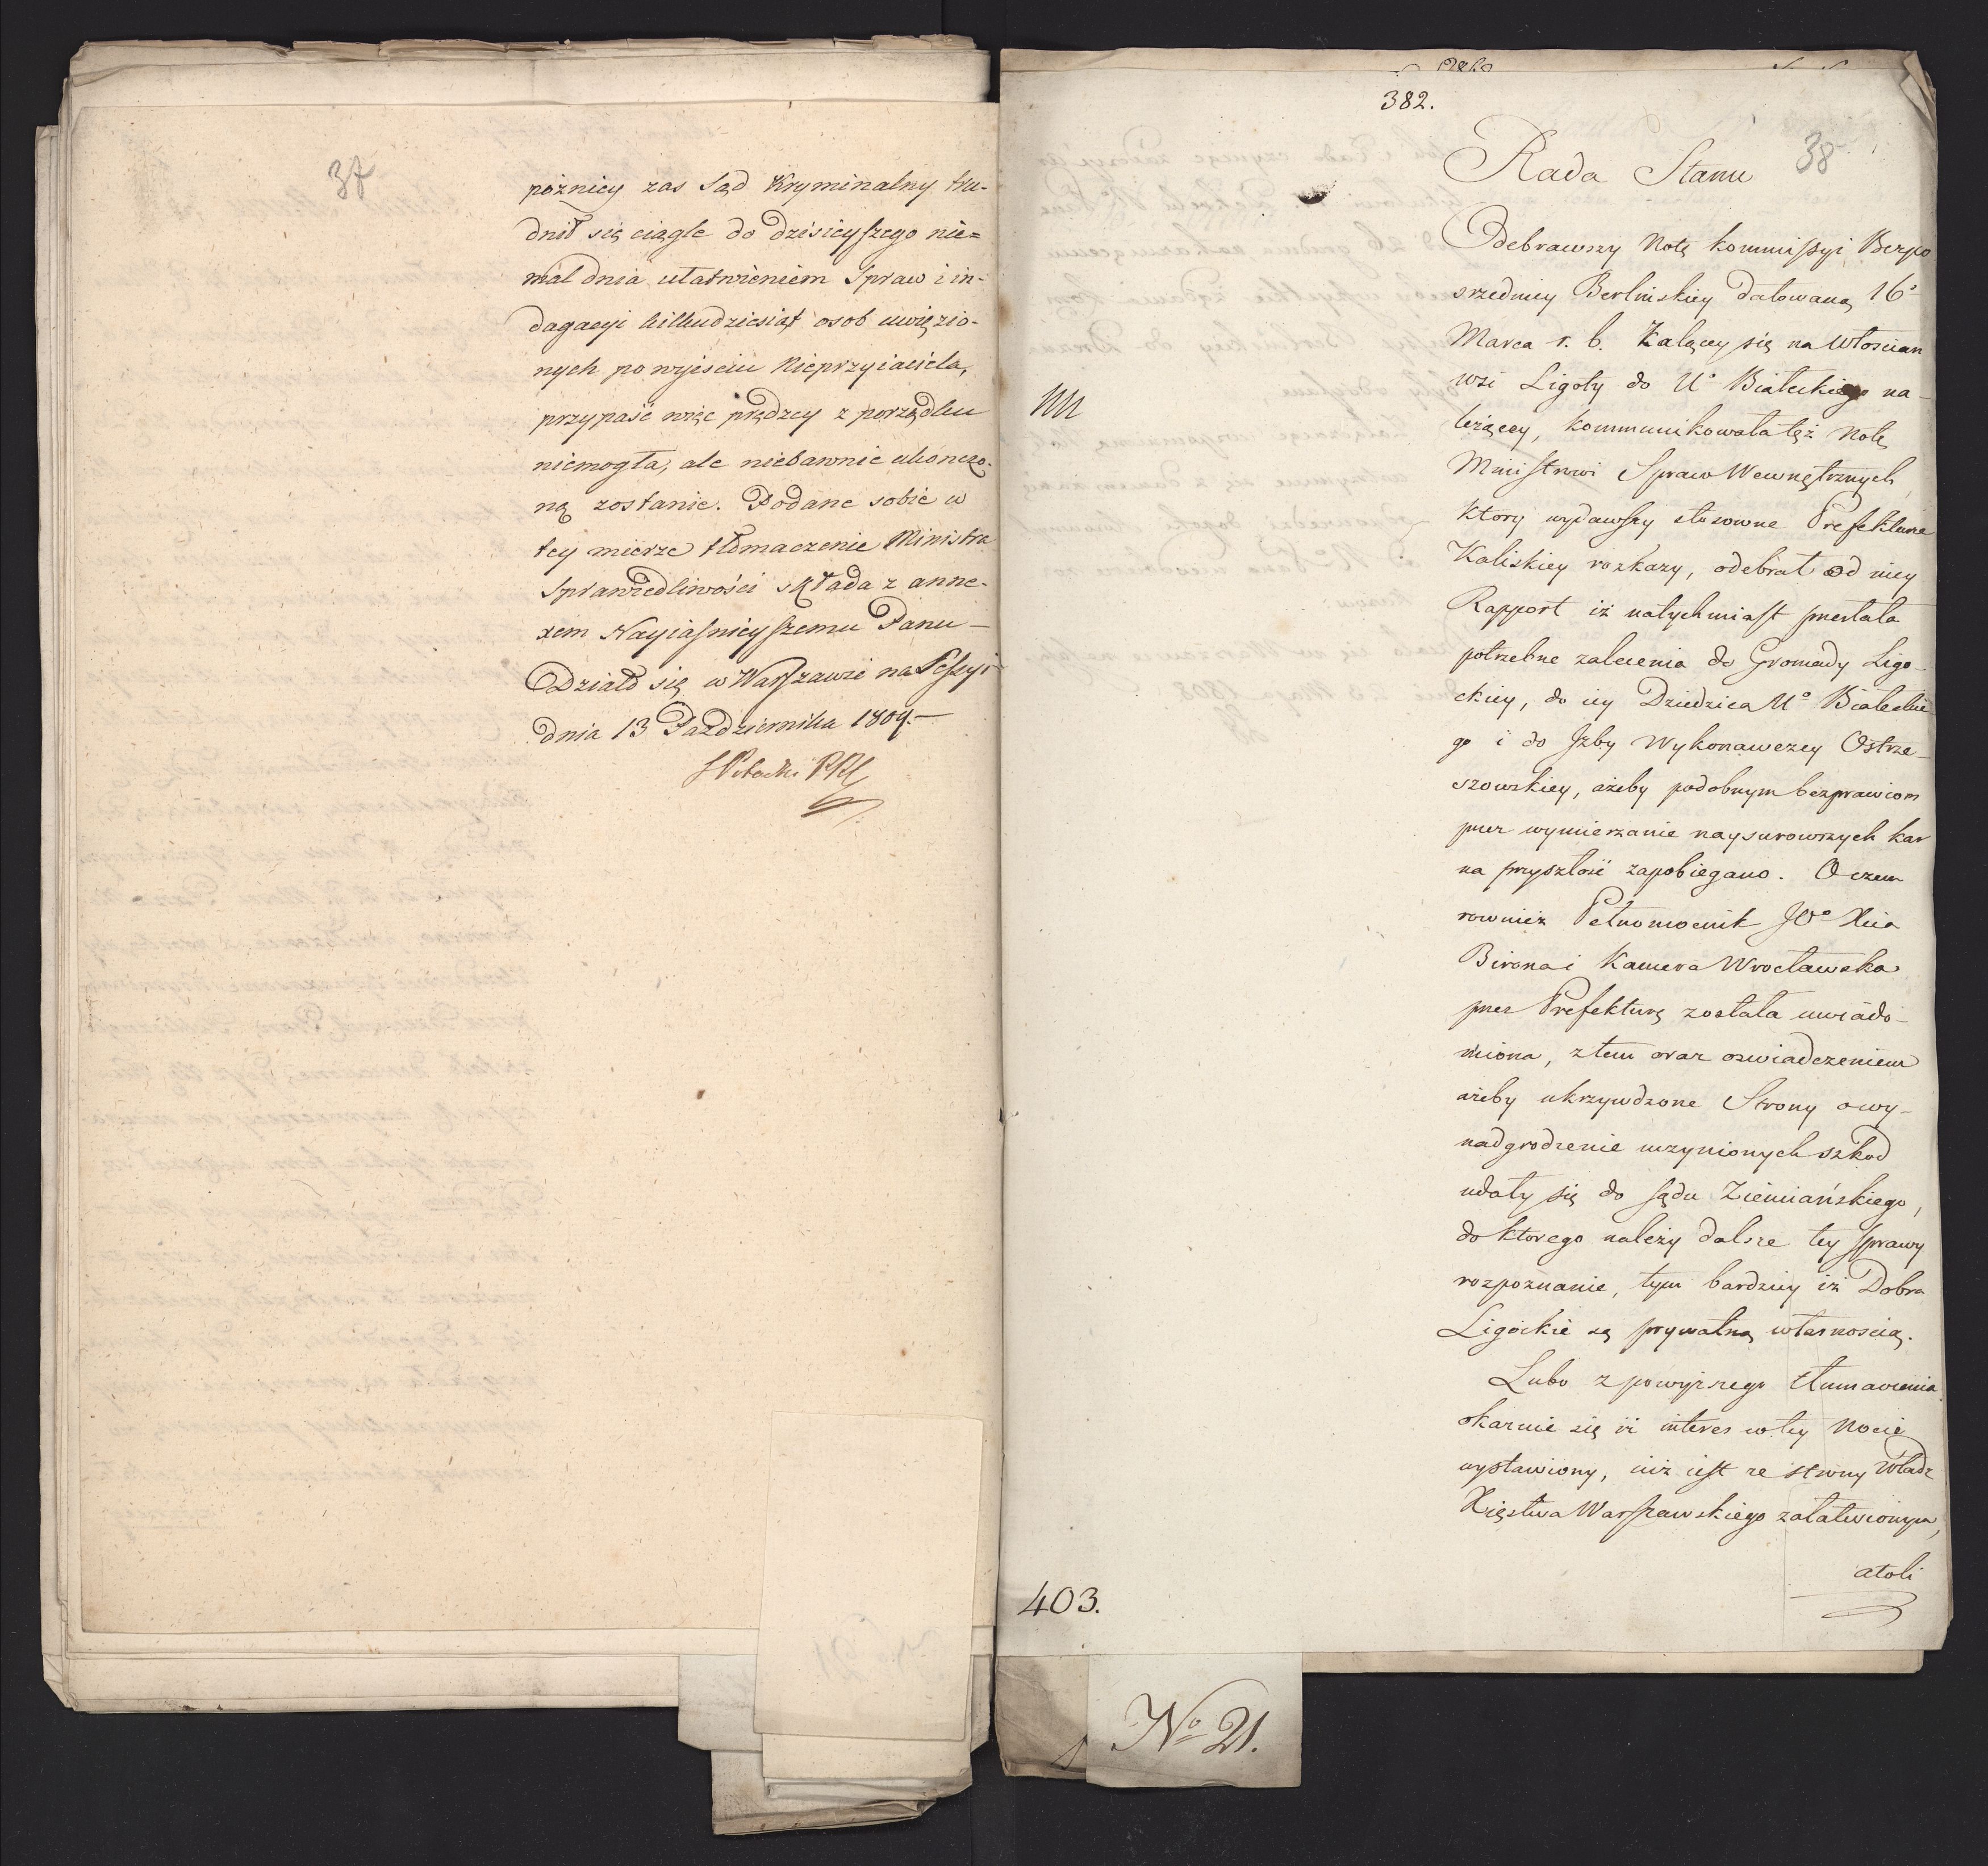 37
poznicy zas Sąd Kryminalny tru-
dnił się ciągle do dzisieyszego nie=
mal dnia ułatwieniem Spraw i in-
dagacyi kilkudziesiąt osob uwięzio-
nych po wyisciu Nieprzyiaciela,
przypaść więc prędzey z porządku
niemogła, ale niebawnie ukonczo-
ną zostanie. Podane sobie w
tey mierze tłómaczenie Ministra
Sprawiedliwości składa z anne-
xem Nayiaśnieyszemu Panu—
Działo się w Warszawie na Sessyi
dnia 13 Października 1809.—
382.
38
Rada Stanu
Odebrawszy Notę kommissyi Bezpo
srzedniey Berlinskiey datowaną 16º
Marca r. b. Zalącey się na Włoscian
wsi Ligoty do Uº Białeckiego na-
leżącey, kommunikowała też Notę
Ministrowi Spraw Wewnętrznych,
ktory wydawszy stosowne Prefekturze
Kaliskiey rozkazy, odebrał od niey
Rapport iż natychmiast przesłała
potrzebne zalecenia do Gromady Ligo-
ckiey, do iey Dziedzica Uº Białeckie-
go i do Jzby Wykonawczey Ostrze-
szowskiey, ażeby podobnym bezprawiom
przez wymierzanie naysurowszych kar
na przyszłość zapobiegano. O czem
rownież Pełnomocnik JOº Xcia
Birona i Kamera Wrocławska
przez Prefekturę została uwiado-
miona, z tem oraz oswiadczeniem
ażeby ukrzywdzone Strony o wy-
nadgrodzenie uczynionych szkod
udały się do Sądu Ziemiańskiego,
do ktorego należy dalsze tey sprawy
rozpoznanie, tym bardziey iż Dobra
Ligockie są prywatną własnoscią.
Lubo z powyższego tłumaczenia
okazuie się iż interes w tey Nocie
wystawiony, iuż iest ze strony Władz
Xięstwa Warszawskiego załatwionym,
atoli
403.
Nº 21.